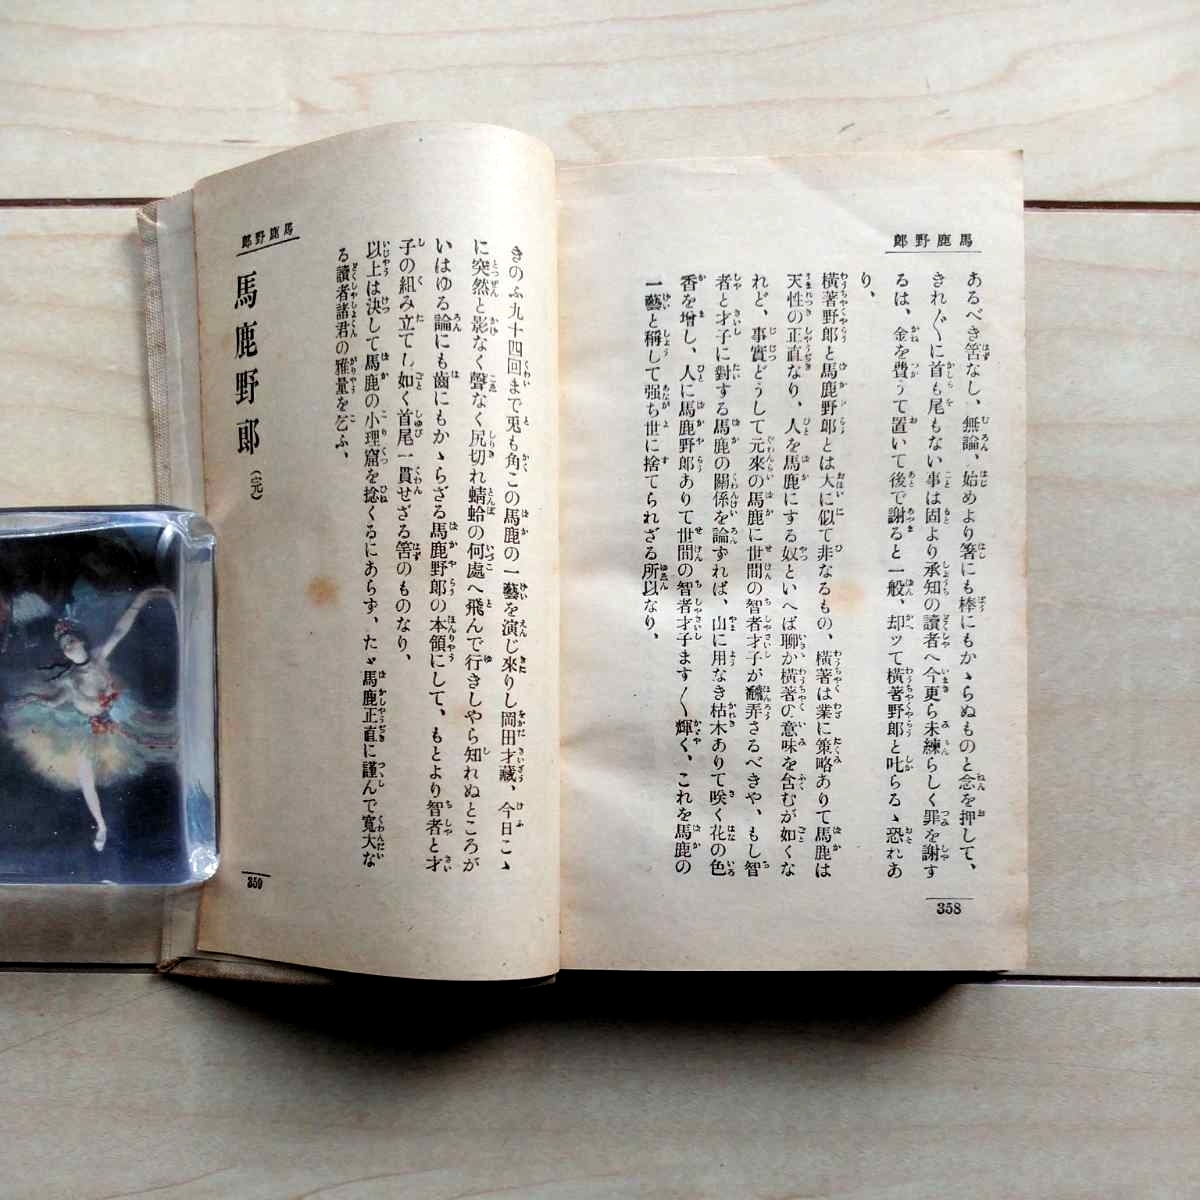 馬鹿野郎
あるべき筈なし、無論、始めより箸にも棒にもかゝらぬものと念を押して、
きれ〲に首も尾もない事は固より承知の讀者へ今更ら未練らしく罪を謝す
るは、金を費うて置いて後で謝ると一般、却ツて橫著野郎と叱らるゝ恐れあ
り、
橫著野郎と馬鹿野郎とは大に似て非なるもの、橫著は業に策略ありて馬鹿は
天性の正直なり、人を馬鹿にする奴といへば聊か橫著の意味を含むが如くな
れど、事實どうして元來の馬鹿に世間の智者才子が飜弄さるべきや、もし智
者と才子に對する馬鹿の關係を論ずれば、山に用なき枯木ありて咲く花の色
香を增し、人に馬鹿野郎ありて世間の智者才子ます〱輝く、これを馬鹿の
一藝と稱して强ち世に捨てられざる所以なり、
358
馬鹿野郎
きのふ九十四回まで兎も角この馬鹿の一藝を演じ來りし岡田才藏、今日こゝ
に突然と影なく聲なく尻切れ蜻蛉の何處へ飛んで行きしやら知れぬところが
いはゆる論にも齒にもかゝらざる馬鹿野郎の本領にして、もとより智者と才
子の組み立てし如く首尾一貫せざる筈のものなり、
以上は決して馬鹿の小理窟を捻くるにあらず、たゞ馬鹿正直に謹んで寬大な
る讀者諸君の雅量を乞ふ、
馬鹿野郎(完)
359